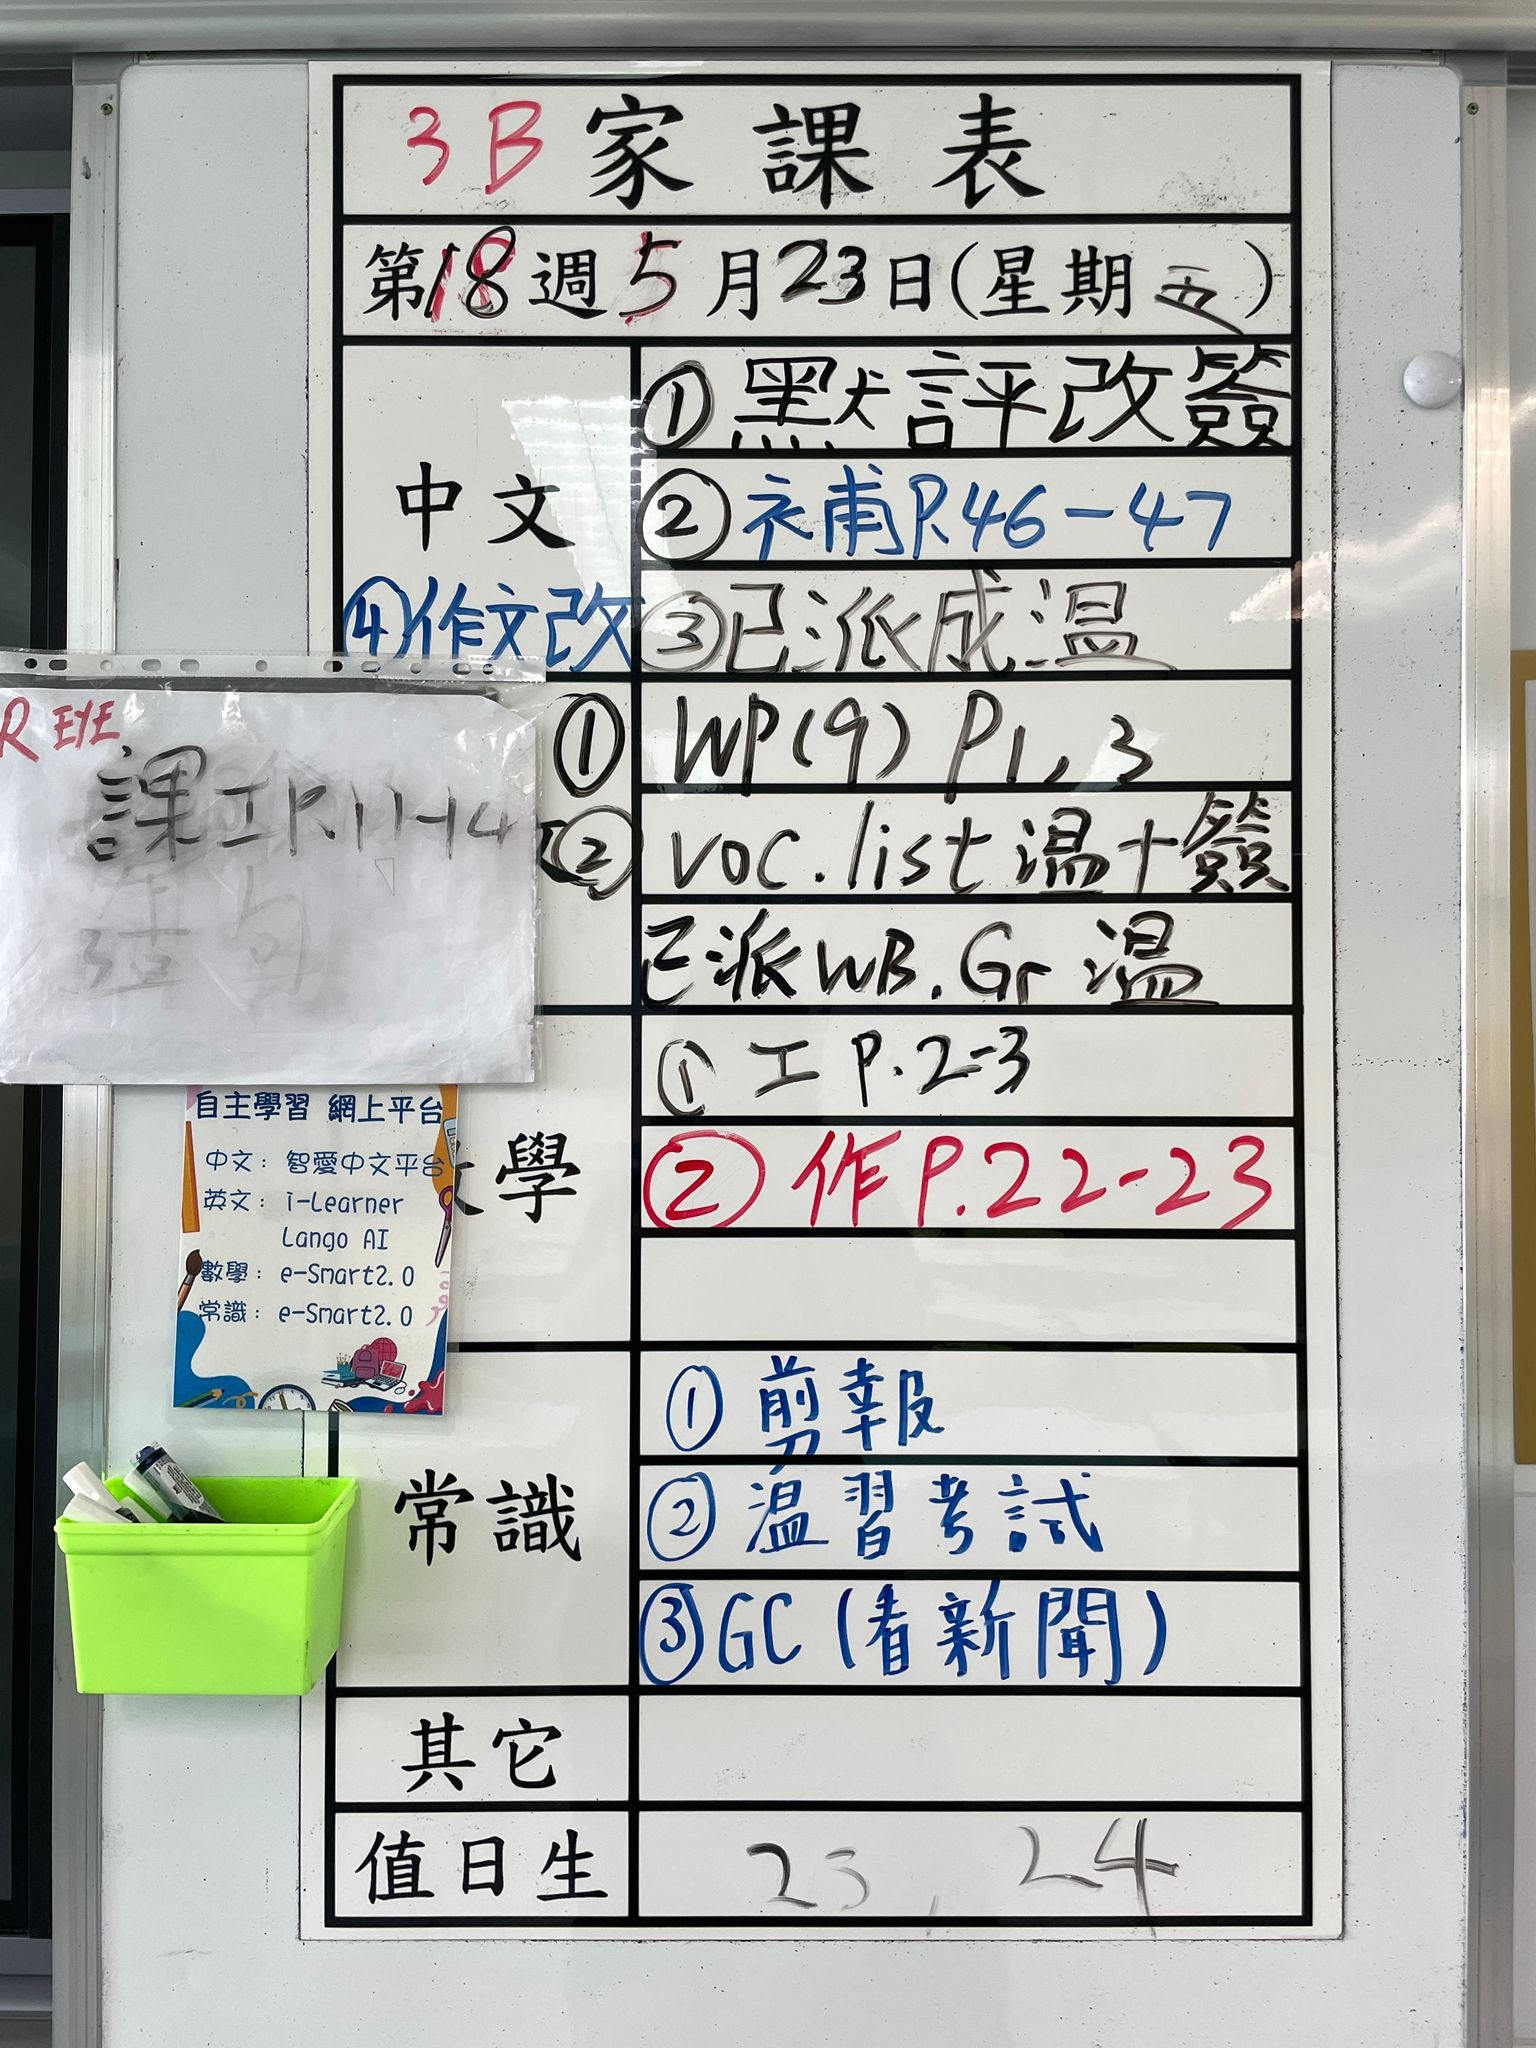 3B 家課表
第18週5月23日(星期五)
中文
① 默評改簽
② 补甫P.46-47
③ 已派成温
④ 作文改
① WP(9) P1, 3
② voc.list 温+簽
已派WB.Gr 温
學
① 工 P.2-3
② 作P.22-23
常識
① 剪報
② 温習考試
③ GC (看新聞)
其它
值日生
23, 24
R EYE
課工P.11-14
自主學習 網上平台
中文: 智愛中文平台
英文: i-Learner
Lango AI
數學: e-Smart2.0
常識: e-Smart2.0